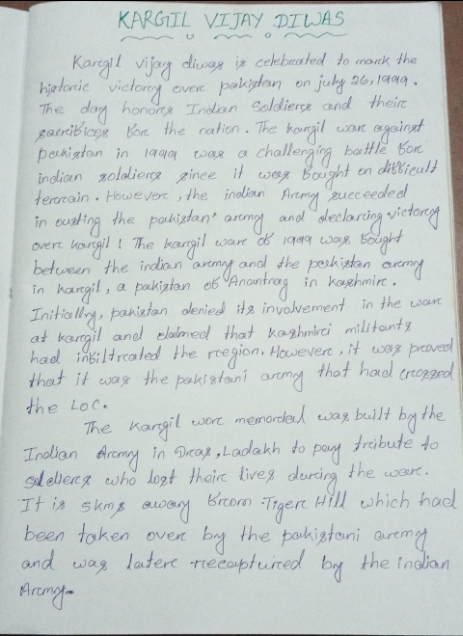 KARGIL VIJAY DIWAS
Kargil vijay diwas is celebrated to mark the
historic victory over pakistan on july 26, 1999.
The day honors Indian Soldiers and their
sacrifices for the nation. The kargil war against
Pakistan in 1999 was a challenging battle for
indian soldiers since it was fought on difficult
terrain. However, the indian Army succeeded
in ousting the pakistan' army and declaring victory
over kargil! The kargil war of 1999 was fought
between the indian army and the pakistan army
in kargil, a pakistan of Anantnag in kashmir.
Initially, pakistan denied its involvement in the war
at kargil and claimed that kashmiri militants
had infiltrated the region. However, it was proved
that it was the pakistani army that had crossed
the LOC.
The kargil war memorial was built by the
Indian Army in Dras, Ladakh to pay tribute to
soldiers who lost their lives during the war.
It is 5kms away from Tiger Hill which had
been taken over by the pakistani army
and was later recaptured by the indian
Army.